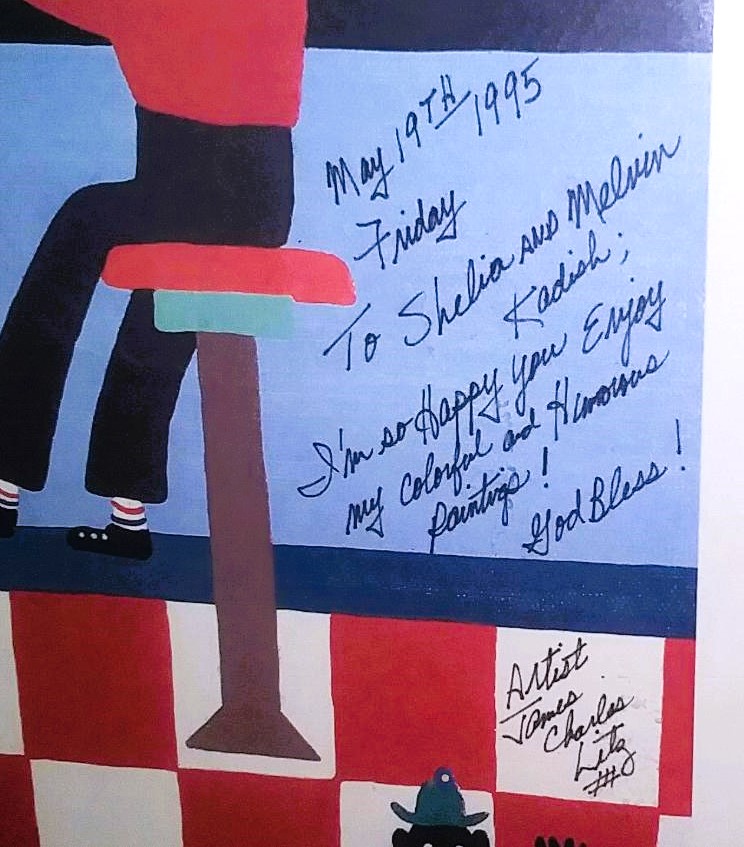 May 19TH 1995
Friday
To Shelia AND Melvin
Kadish;
I'm so Happy you Enjoy
my Colorful and Humorous
Paintings!
God Bless!
Artist
James
Charles
Litz